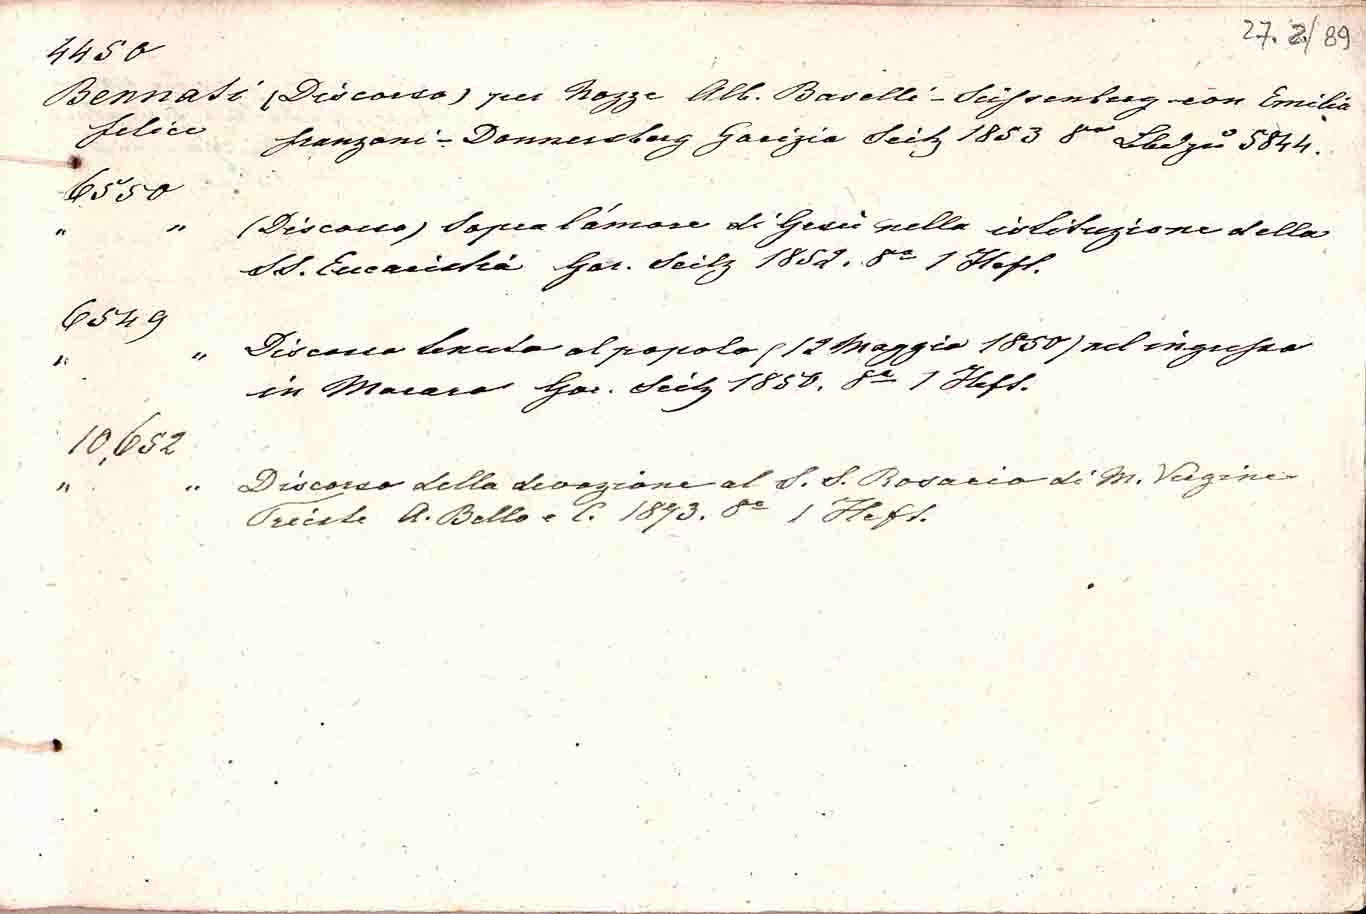 27. 2/89
4450
Bennati (Discorso) per Nozze Alb. Baselli - Süssenberg con Emilia
Felice Franzoni - Donnersberg Gorizia Seitz 1853 8º 5844.
6550
" " (Discorso) Sopra l'amore di Gesù nella istituzione della
S S. Eucaristia Gor. Seitz 1852. 8º 1 Heft.
6549
" " Discorso tenuto al popolo (12 Maggio 1850) nel ingresso
in Mossa Gor. Seitz 1850. 8º 1 Heft.
10,652
" " Discorso della devozione al S. S. Rosario di M. Vergine
Trieste A. Bello e C. 1873. 8º 1 Heft.